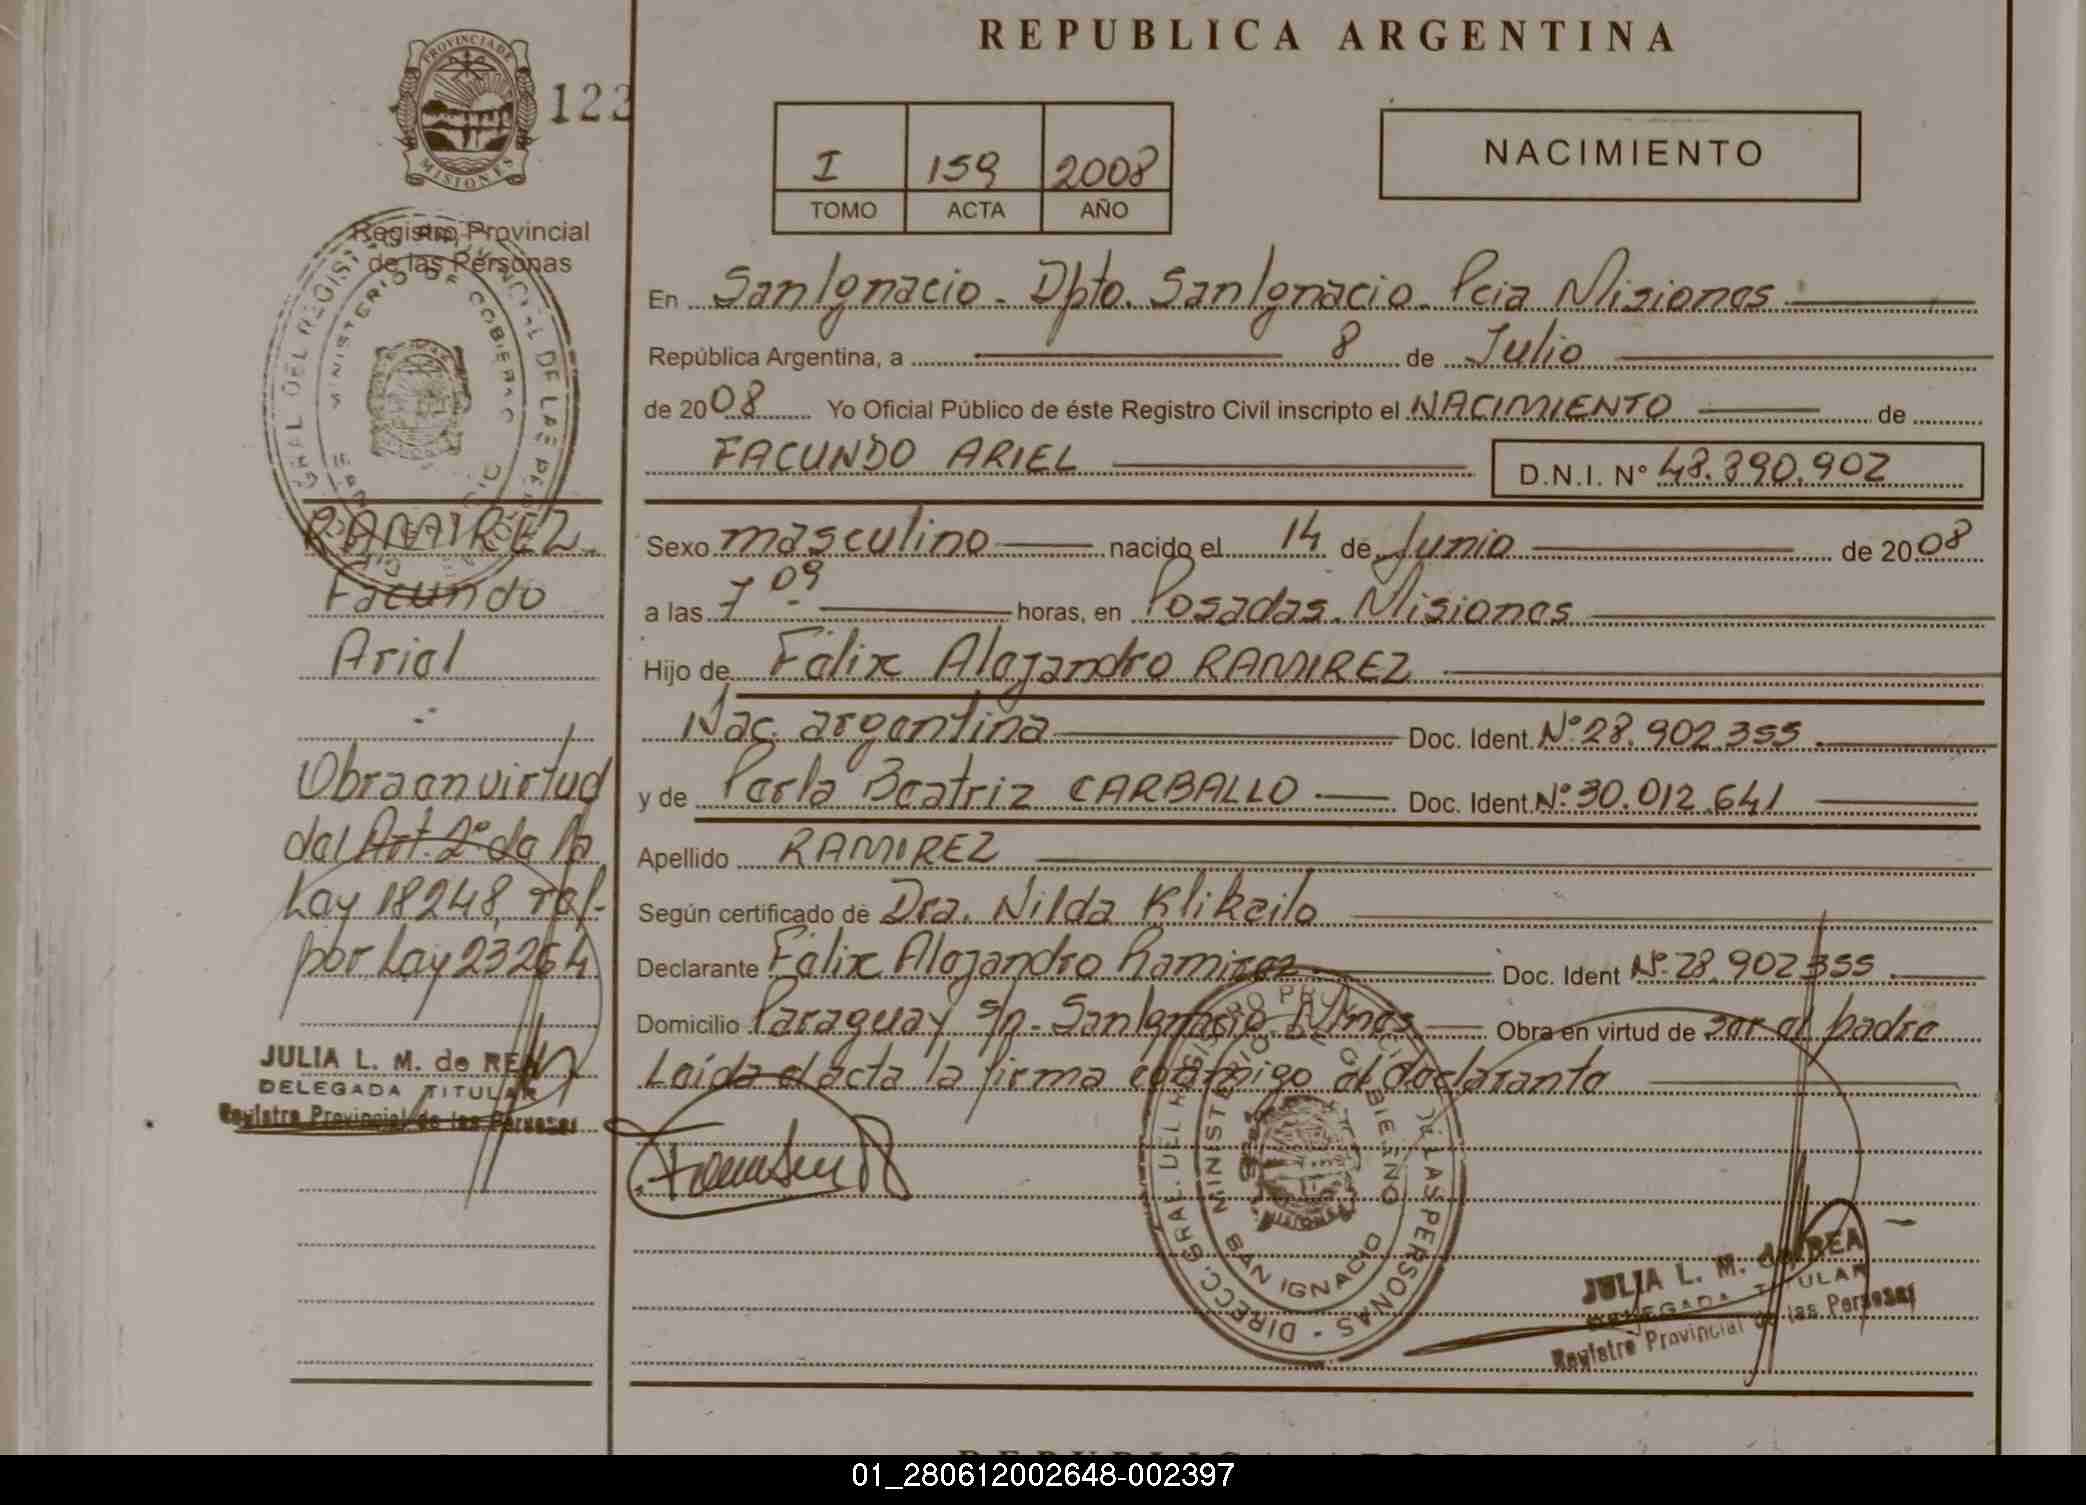 REPUBLICA ARGENTINA
PROVINCIA DE
MISIONES
122
I 159 2008
TOMO ACTA AÑO
NACIMIENTO
Registro Provincial
de las Personas
En San Ignacio - Dpto. San Ignacio - Pcia Misiones
República Argentina, a 8 de Julio
de 2008 Yo Oficial Público de éste Registro Civil inscripto el NACIMIENTO de
FACUNDO ARIEL
D.N.I. Nº 48.390.902
Sexo masculino nacido el 14 de Junio de 2008
a las 7 09 horas, en Posadas. Misiones
Hijo de Félix Alejandro RAMIREZ
Nac. argentina Doc. Ident. Nº 28.902.355
y de Perla Beatriz CARBALLO Doc. Ident. Nº 30.012.641
Apellido RAMIREZ
Según certificado de Dra. Nilda
Declarante Félix Alejandro Ramirez Doc. Ident Nº 28.902.355
Domicilio Paraguay s/n - San Ignacio - Mnes Obra en virtud de ser el padre
Leída el acta la firma conmigo el declarante
RAMIREZ
Facundo
Ariel
Obra en virtud
del Art. 2º de la
Ley 18248, ref.
por Ley 23264
JULIA L. M. de REA
DELEGADA TITULAR
Registro Provincial de las Personas
DIRECC. GRAL. DEL REGISTRO PROVINCIAL DE LAS PERSONAS
MINISTERIO DE GOBIERNO
SAN IGNACIO
JULIA L. M. de REA
DELEGADA TITULAR
Registro Provincial de las Personas
01_280612002648-002397